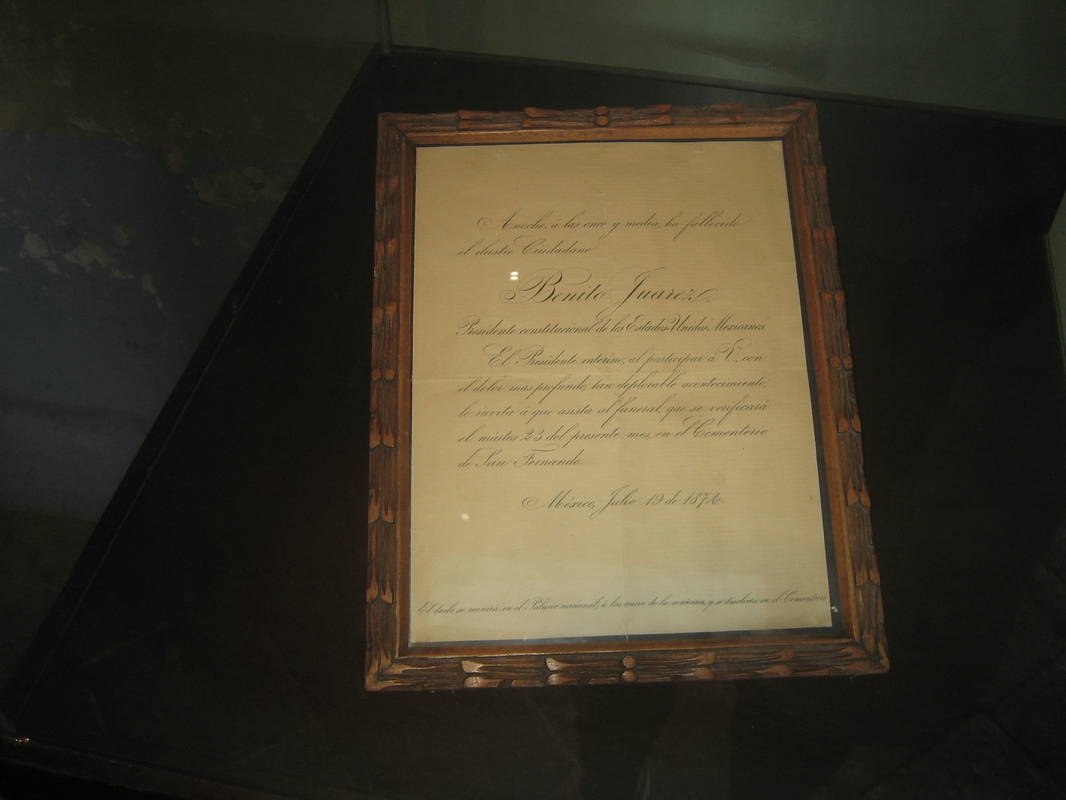 Anoche, á las once y media, ha fallecido
el ilustre Ciudadano
Benito Juarez,
Presidente constitucional de los Estados-Unidos Mexicanos.
El Presidente interino, al participar á V., con
el dolor mas profundo, tan deplorable acontecimiento,
le invita á que asista al funeral, que se verificará
el mártes 23 del presente mes, en el Cementerio
de San Fernando.
México, Julio 19 de 1872.
El duelo se reunirá en el Palacio nacional, á las nueve de la mañana, y se disolverá en el Cementerio.